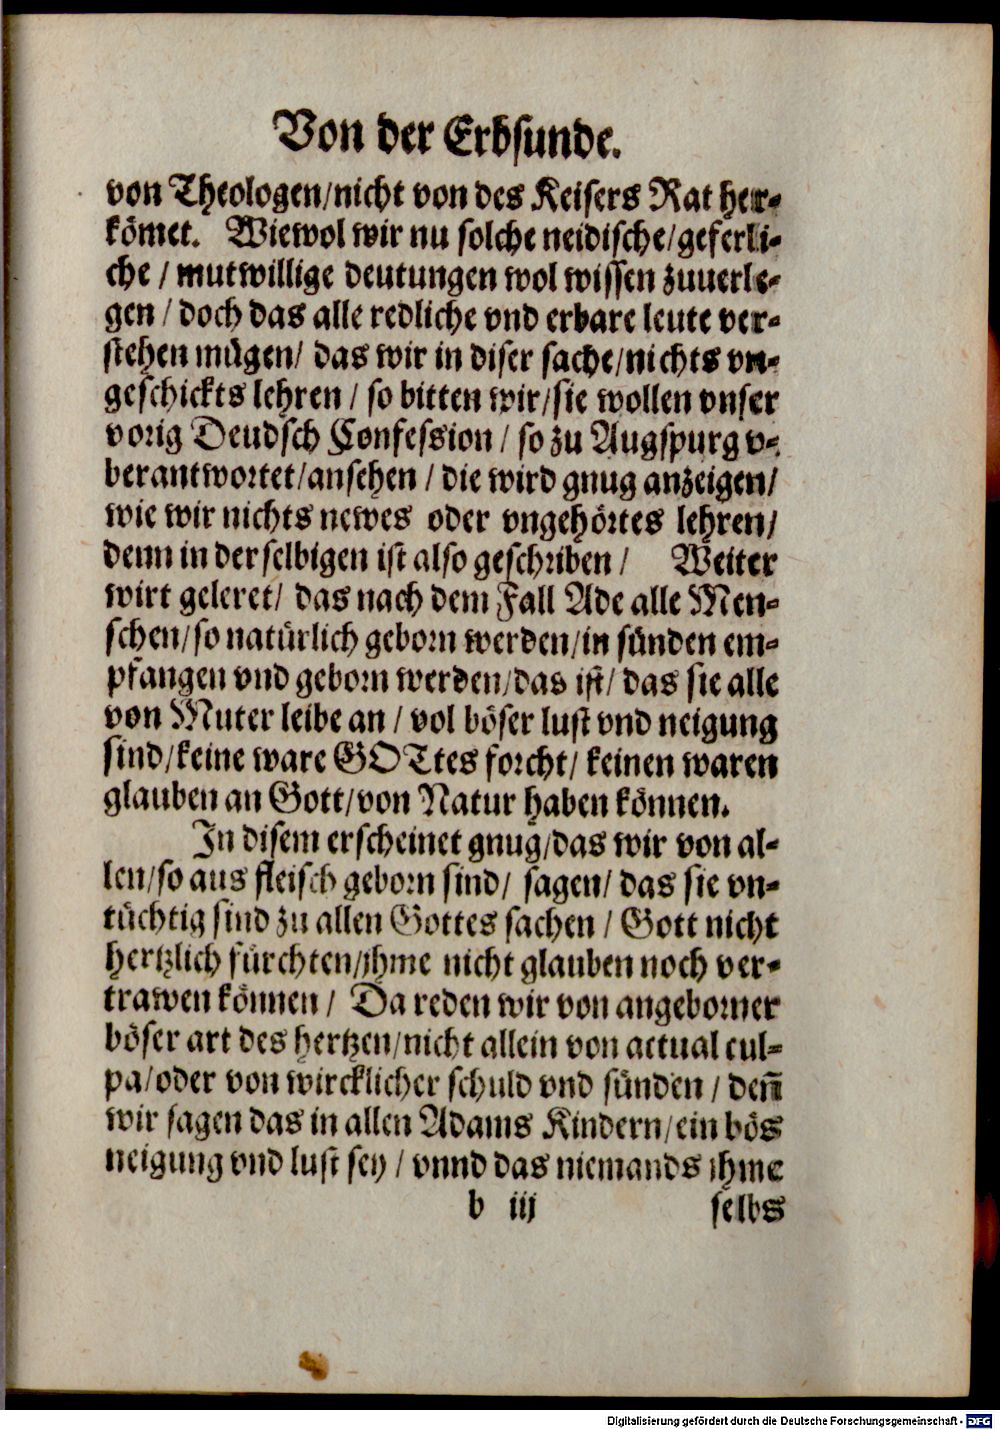 Von der Erbsunde.
von Theologen/nicht von des Keisers Rat her-
kömet. Wiewol wir nu solche neidische/geferli-
che / mutwillige deutungen wol wissen zuuerle-
gen / doch das alle redliche vnd erbare leute ver-
stehen mügen/ das wir in diser sache/nichts vn-
geschickts lehren / so bitten wir/sie wollen vnser
vorig Deudsch Confession / so zu Augspurg v-
berantwortet/ansehen / die wird gnug anzeigen/
wie wir nichts newes oder vngehörtes lehren/
denn in der selbigen ist also geschriben / Weiter
wirt geleret/ das nach dem Fall Ade alle Men-
schen/so natürlich geborn werden/in sünden em-
pfangen vnd geborn werden/das ist/ das sie alle
von Muter leibe an / vol böser lust vnd neigung
sind/keine ware GOTtes forcht/ keinen waren
glauben an Gott/von Natur haben können.
In disem erscheinet gnug/das wir von al-
len/so aus fleisch geborn sind/ sagen/ das sie vn-
tüchtig sind zu allen Gottes sachen / Gott nicht
hertzlich fürchten/jhme nicht glauben noch ver-
trawen können / Da reden wir von angeborner
böser art des hertzen/nicht allein von actual cul-
pa/oder von wircklicher schuld vnd sünden / deñ
wir sagen das in allen Adams Kindern/ein bös
neigung vnd lust sey / vnnd das niemands jhme
b iij selbs
Digitalisierung gefördert durch die Deutsche Forschungsgemeinschaft - DFG